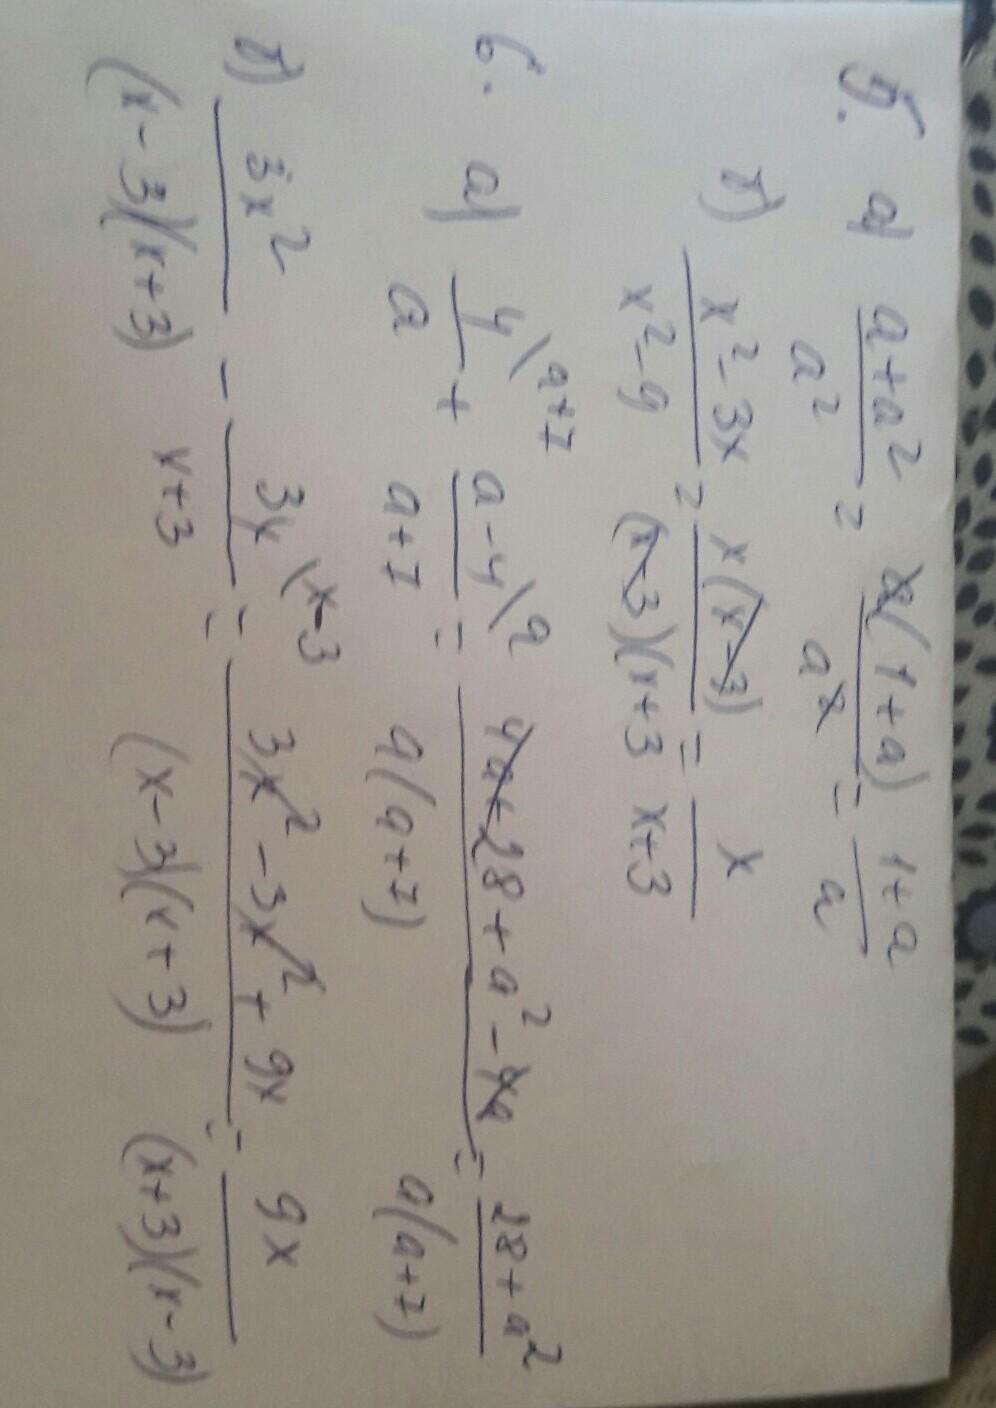 5. а) a+a²/a² = a(1+a)/a² = 1+a/a
б) x²-3x/x²-9 = x(x-3)/(x-3)(x+3 = x/x+3
6. а) 4\a+7/a + a-4\a/a+7 = 4a+28+a²-4a/a(a+7) = 28+a²/a(a+7)
б) 3x²/(x-3)(x+3) - 3x\x-3/x+3 = 3x²-3x²+9x/(x-3)(x+3) = 9x/(x+3)(x-3)